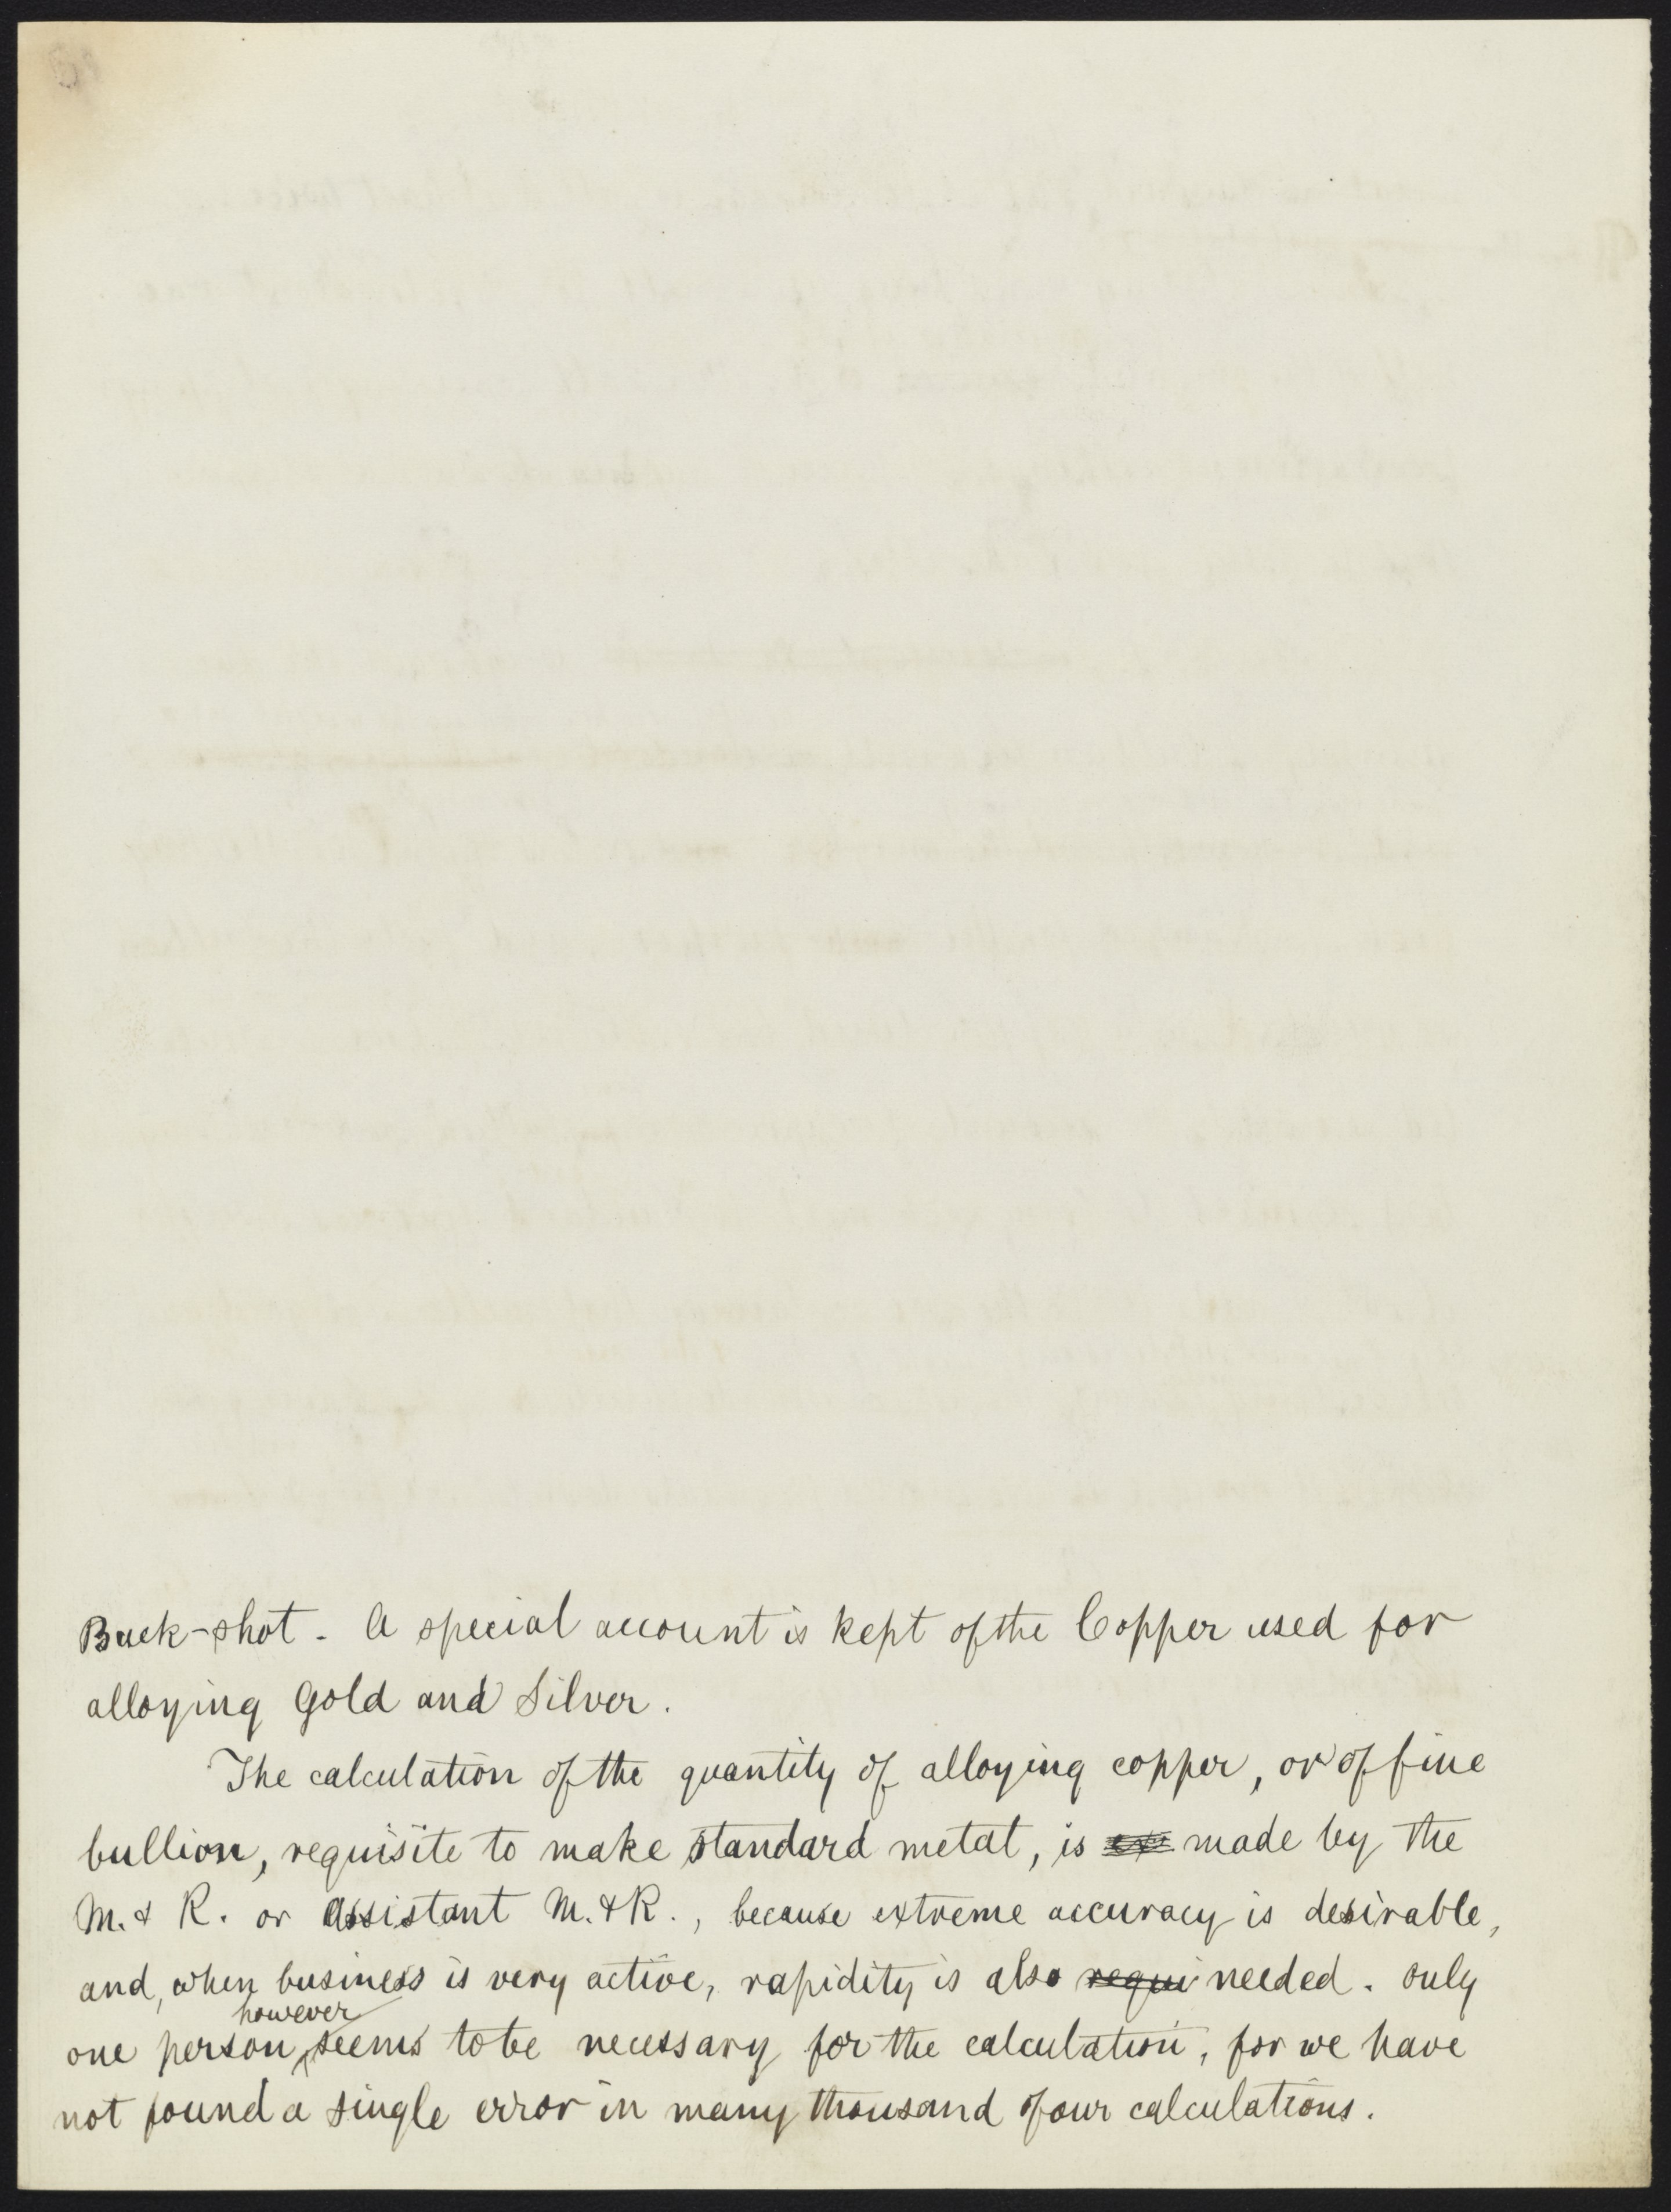 Buck-shot. A special account is kept of the Copper used for
alloying Gold and Silver.
The calculation of the quantity of alloying copper, or of fine
bullion, requisite to make standard metal, is made by the
M. & R. or Assistant M. & R., because extreme accuracy is desirable,
and, when business is very active, rapidity is also requi needed. Only
however
one person, seems to be necessary for the calculation, for we have
not found a single error in many thousand of our calculations.